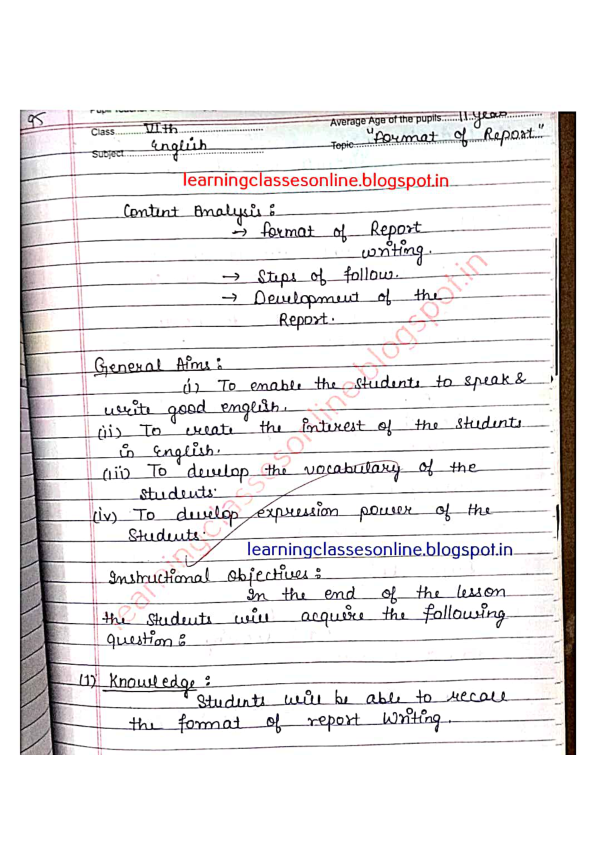 95
Average Age of the pupils 11 years
Class VIth
"Format of Report"
Subject English
Topic
learningclassesonline.blogspot.in
Content Analysis :
→ format of Report
writing.
→ Steps of follow.
→ Development of the
Report.
General Aims :
(i) To enable the students to speak &
write good english.
(ii) To create the interest of the students
in English.
(iii) To develop the vocabulary of the
students.
(iv) To develop expression power of the
Students.
learningclassesonline.blogspot.in
learningclassesonline.blogspot.in
Instructional objectives :
In the end of the lesson
the students will acquire the following
question :
(1) Knowledge :
Students will be able to recall
the format of report writing.